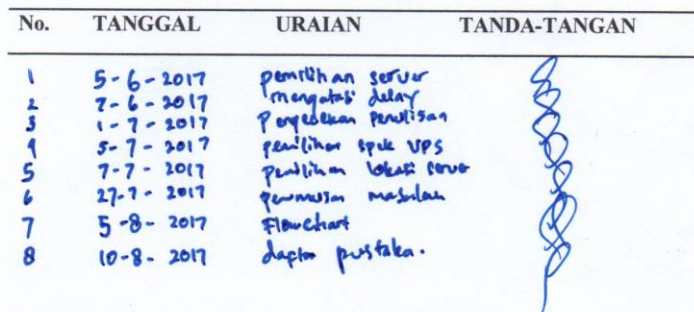 No. TANGGAL URAIAN TANDA-TANGAN
1 5-6-2017 pemilihan server
2 7-6-2017 mengatasi delay
3 1-7-2017 Pengecekan penulisan
4 5-7-2017 pemilihan spek VPS
5 7-7-2017 pemilihan lokasi server
6 27-7-2017 perumusan masalah
7 5-8-2017 Flowchart
8 10-8-2017 daftar pustaka.